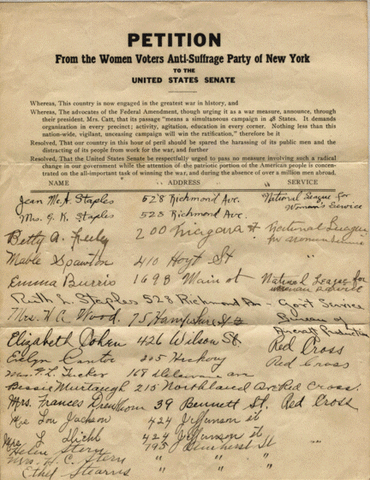 PETITION
From the Women Voters Anti-Suffrage Party of New York
TO THE
UNITED STATES SENATE
Whereas, This country is now engaged in the greatest war in history, and
Whereas, The advocates of the Federal Amendment, though urging it as a war measure, announce, through
their president, Mrs. Catt, that its passage "means a simultaneous campaign in 48 States. It demands
organization in every precinct; activity, agitation, education in every corner. Nothing less than this
nation-wide, vigilant, unceasing campaign will win the ratification," therefore be it
Resolved, That our country in this hour of peril should be spared the harassing of its public men and the
distracting of its people from work for the war, and further
Resolved, That the United States Senate be respectfully urged to pass no measure involving such a radical
change in our government while the attention of the patriotic portion of the American people is concen-
trated on the all-important task of winning the war, and during the absence of over a million men abroad.
NAME ADDRESS SERVICE
Jean McA. Staples 528 Richmond Ave. National League for Woman's Service
Mrs. J. K. Staples 523 Richmond Ave.
Betty A. Feeley 200 Niagara St National League for Woman Service
Mable 410 Hoyt St
Emma Burris 1698 Main st National League for
Ruth L. Staples 528 Richmond Gov't Service
Mrs. H. A. Wood. 75 Hampshire St Bureau of Aircraft Production
Elizabeth Cohen 426 Wilson St. Red Cross
Evelyn 305 Hickory Red Cross
Tucker 168 Delaware
Bessie Murtaugh 215 Northland Red Cross
Mrs. Frances 39 Bennett St. Red Cross
Mrs Lou Jackson 424 Jefferson st
Mrs. L Diehl 424 Jefferson St "
Helen Stern 195 St
Mrs. H. C. Stern " " "
Ethel Stearns " " "